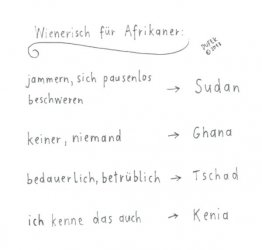 Wienerisch für Afrikaner:
DUREK
©2018
jammern, sich pausenlos
beschweren → Sudan
keiner, niemand → Ghana
bedauerlich, betrüblich → Tschad
ich kenne das auch → Kenia